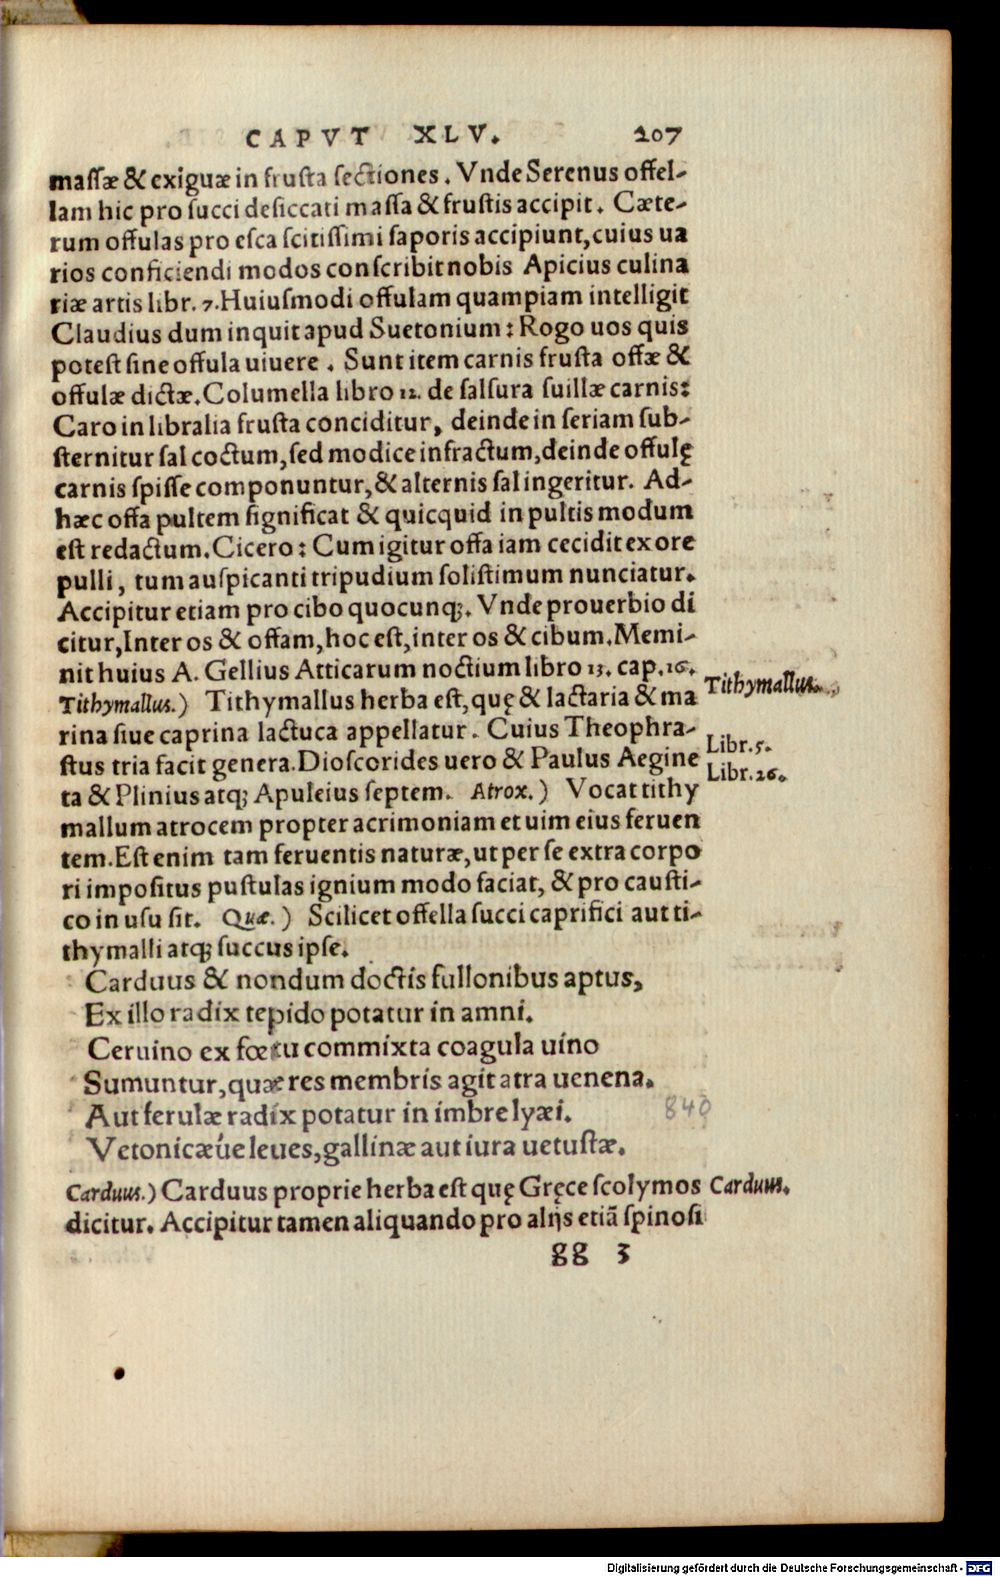 CAPVT XLV. 207
massæ & exiguæ in frusta sectiones. Vnde Serenus offel-
lam hic pro succi desiccati massa & frustis accipit. Cæte-
rum offulas pro esca scitissimi saporis accipiunt, cuius ua
rios conficiendi modos conscribit nobis Apicius culina
riæ artis libr. 7. Huiusmodi offulam quampiam intelligit
Claudius dum inquit apud Suetonium: Rogo uos quis
potest sine offula uiuere. Sunt item carnis frusta offæ &
offulæ dictæ. Columella libro 12. de salsura suillæ carnis:
Caro in libralia frusta conciditur, deinde in seriam sub-
sternitur sal coctum, sed modice infractum, deinde offulę
carnis spisse componuntur, & alternis sal ingeritur. Ad-
hæc offa pultem significat & quicquid in pultis modum
est redactum. Cicero: Cum igitur offa iam cecidit ex ore
pulli, tum auspicanti tripudium solistimum nunciatur.
Accipitur etiam pro cibo quocunq;. Vnde prouerbio di
citur, Inter os & offam, hoc est, inter os & cibum. Memi-
nit huius A. Gellius Atticarum noctium libro 13. cap. 16.
Tithymallus.) Tithymallus herba est, quę & lactaria & ma
Tithymallus.
rina siue caprina lactuca appellatur. Cuius Theophra-
Libr. 5.
stus tria facit genera. Dioscorides uero & Paulus Aegine
Libr. 26.
ta & Plinius atq; Apuleius septem. Atrox.) Vocat tithy
mallum atrocem propter acrimoniam et uim eius feruen
tem. Est enim tam feruentis naturæ, ut per se extra corpo
ri impositus pustulas ignium modo faciat, & pro causti-
co in usu sit. Quæ.) Scilicet offella succi caprifici aut ti-
thymalli atq; succus ipse.
Carduus & nondum doctis fullonibus aptus,
Ex illo radix tepido potatur in amni.
Ceruino ex fœtu commixta coagula uino
Sumuntur, quæ res membris agit atra uenena.
Aut ferulæ radix potatur in imbre lyæi. 840
Vetonicæúe leues, gallinæ aut iura uetustæ.
Carduus.) Carduus proprie herba est quę Gręce scolymos
Carduus.
dicitur. Accipitur tamen aliquando pro alijs etiã spinosi
gg 3
Digitalisierung gefördert durch die Deutsche Forschungsgemeinschaft - DFG